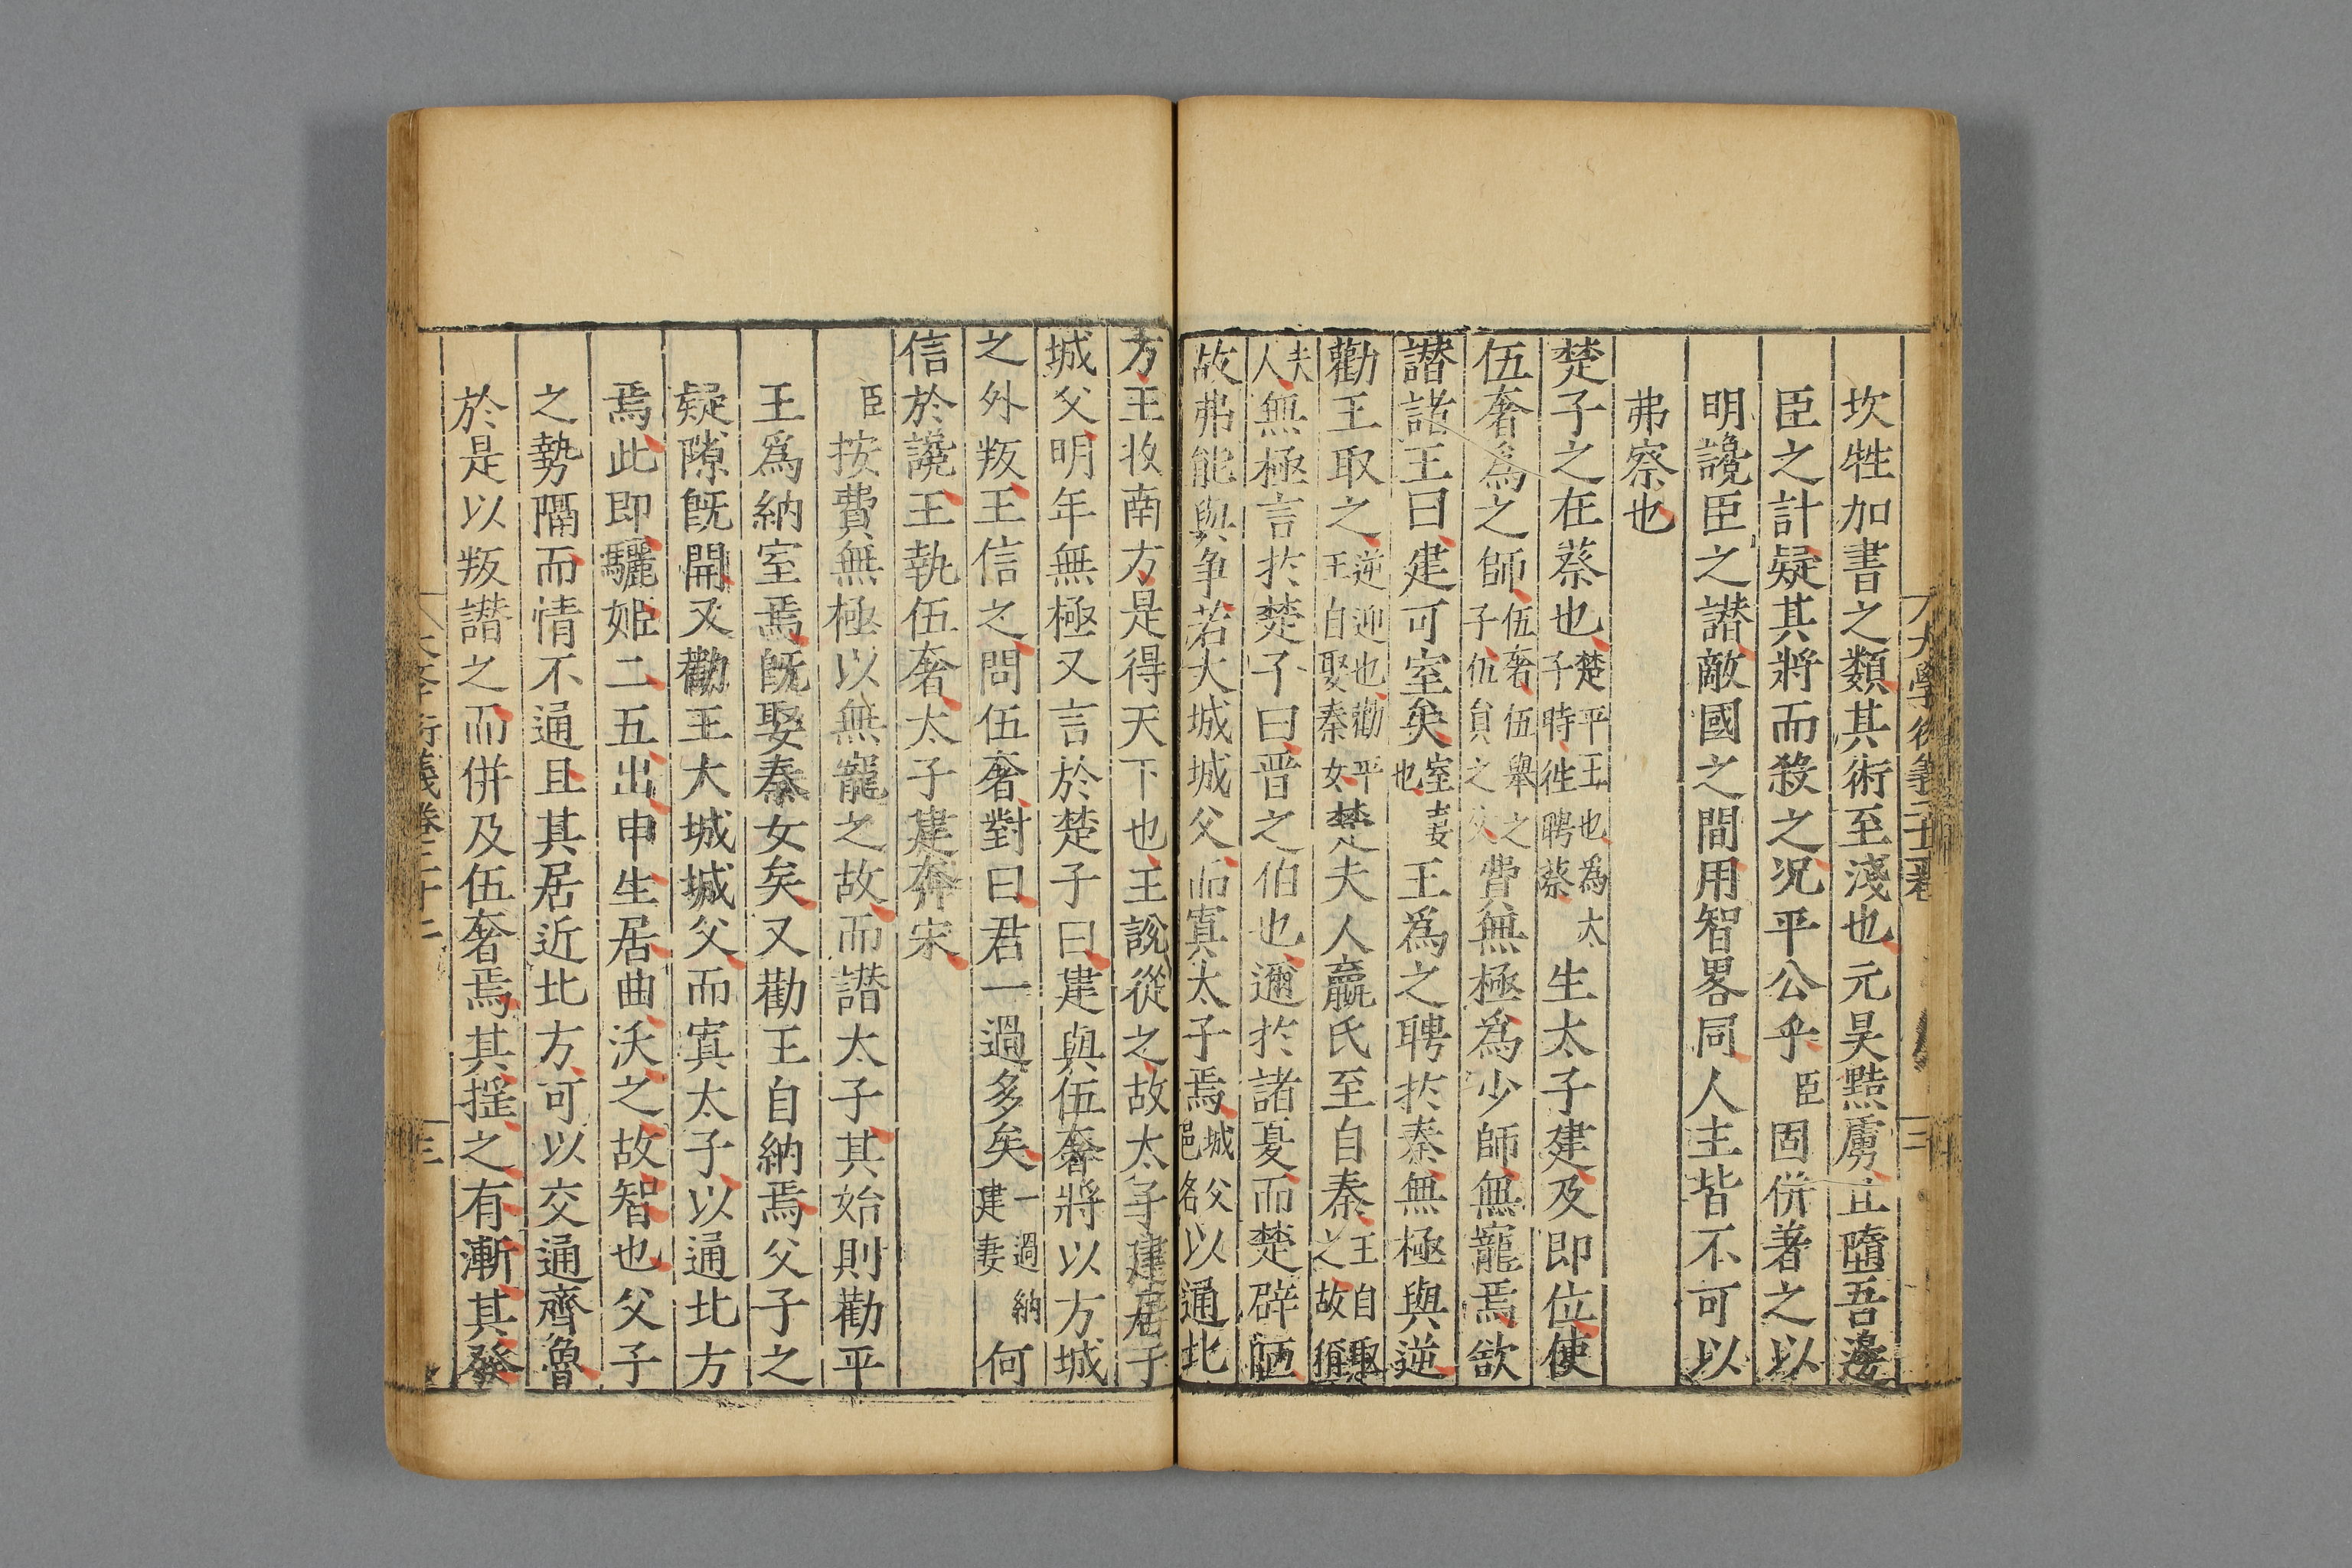 坎牲加書之類其術至淺也元昊黠虜且墮吾邊
臣之計疑其將而殺之况平公乎臣固併著之以
明讒臣之譖敵國之間用智畧同人主皆不可以
弗察也
楚子之在蔡也楚平王也為太子時徃聘蔡生太子建及即位使
伍奢爲之師伍奢伍舉之子伍貟之父費無極爲少師無寵焉欲
譖諸王曰建可室矣室妻也王爲之聘於秦無極與逆
勸王取之逆迎也勸平王自娶秦女楚夫人嬴氏至自秦王自取之故稱
夫人無極言於楚子曰晉之伯也邇於諸夏而楚辟陋
故弗能與争若大城城父而寘太子焉城父邑名以通北
方王收南方是得天下也王說從之故太子建居于
城父明年無極又言於楚子曰建與伍奢將以方城
之外叛王信之問伍奢對曰君一過多矣一過納建妻何
信於讒王執伍奢太子建奔宋
臣按費無極以無寵之故而譖太子其始則勸平
王爲納室焉旣娶秦女矣又勸王自納焉父子之
疑隙旣開又勸王大城城父而寘太子以通北方
焉此即驪姬二五出申生居曲沃之故智也父子
之勢隔而情不通且其居近北方可以交通齊魯
於是以叛譖之而併及伍奢焉其揺之有漸其發
大學衍義卷二十二
三